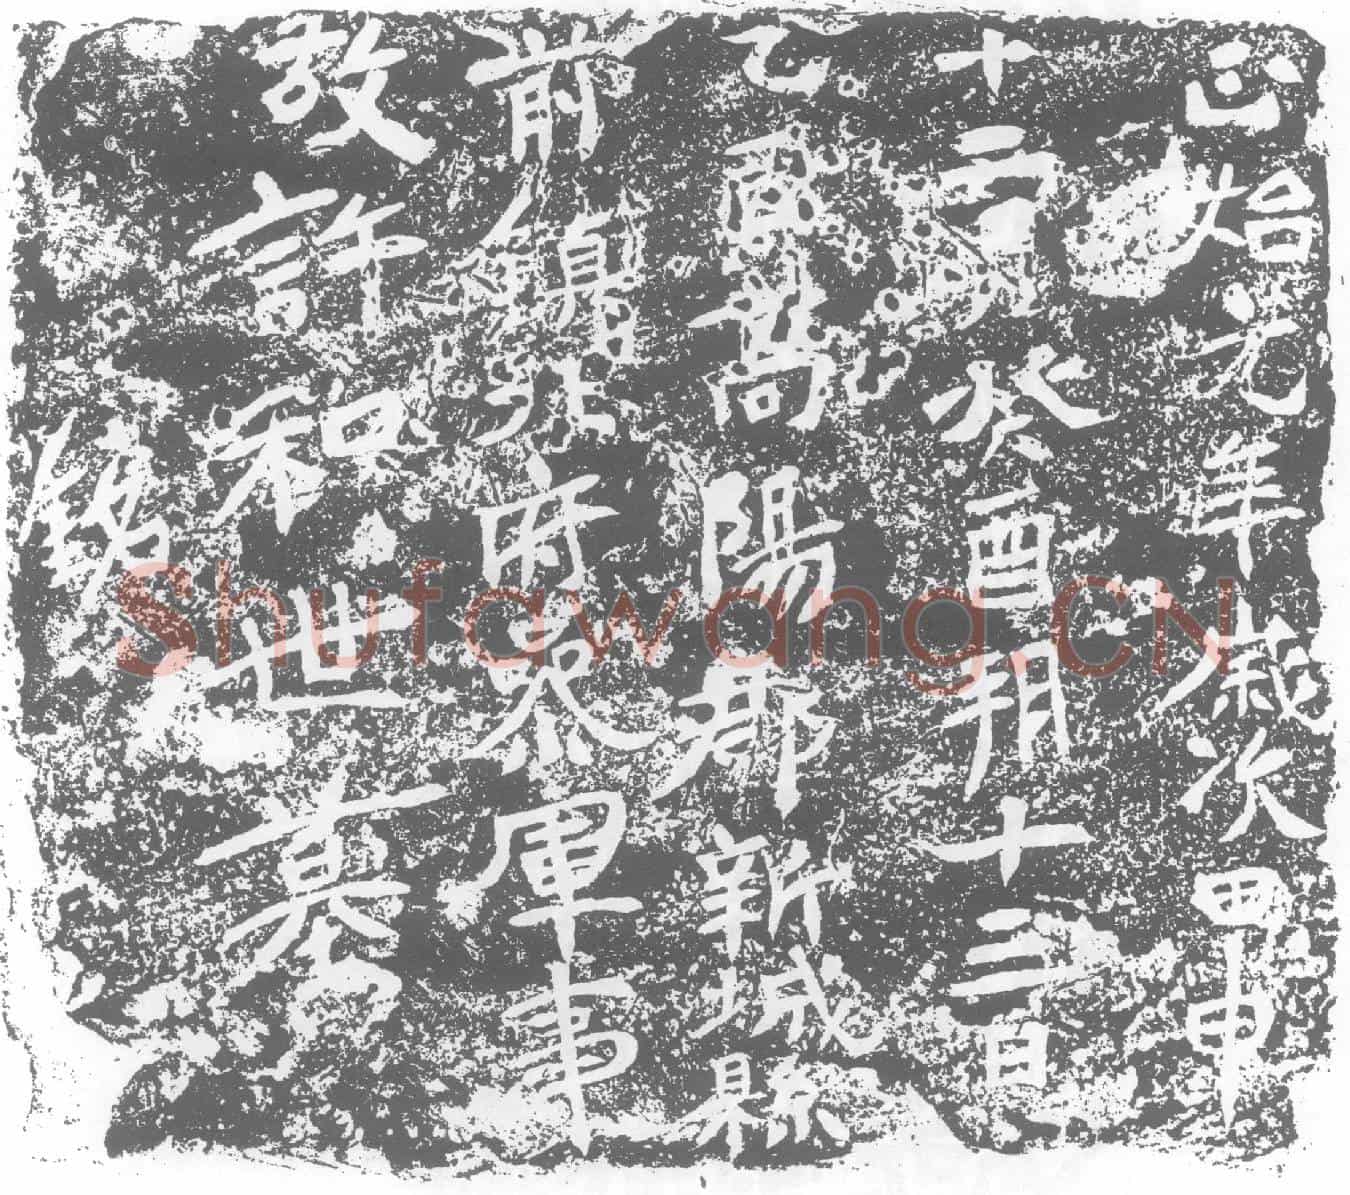 正始元年歲次甲申
十二月癸酉朔十三日
乙酉高陽郡新城縣
前鎮北府參軍事
故許和世墓
銘
Shufawang.CN